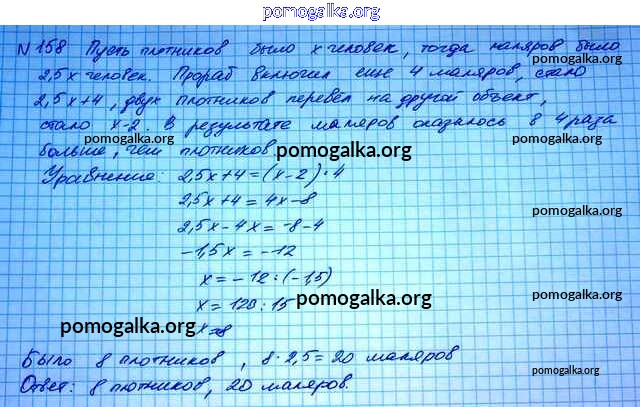 pomogalka.org
N 158 Пусть плотников было x человек, тогда маляров было
2,5x человек. Прораб включил еще 4 маляров, стало
pomogalka.org
2,5x+4, двух плотников перевёл на другой объект,
стало x-2. В результате маляров оказалось в 4 раза
pomogalka.org
pomogalka.org
больше, чем плотников
pomogalka.org
Уравнение: 2,5x+4=(x-2)·4
2,5x+4=4x-8
pomogalka.org
2,5x-4x=-8-4
-1,5x=-12
x=-12:(-1,5)
pomogalka.org
x=120:15
pomogalka.org
x=8
pomogalka.org
Было 8 плотников, 8·2,5=20 маляров
pomogalka.org
Ответ: 8 плотников, 20 маляров.